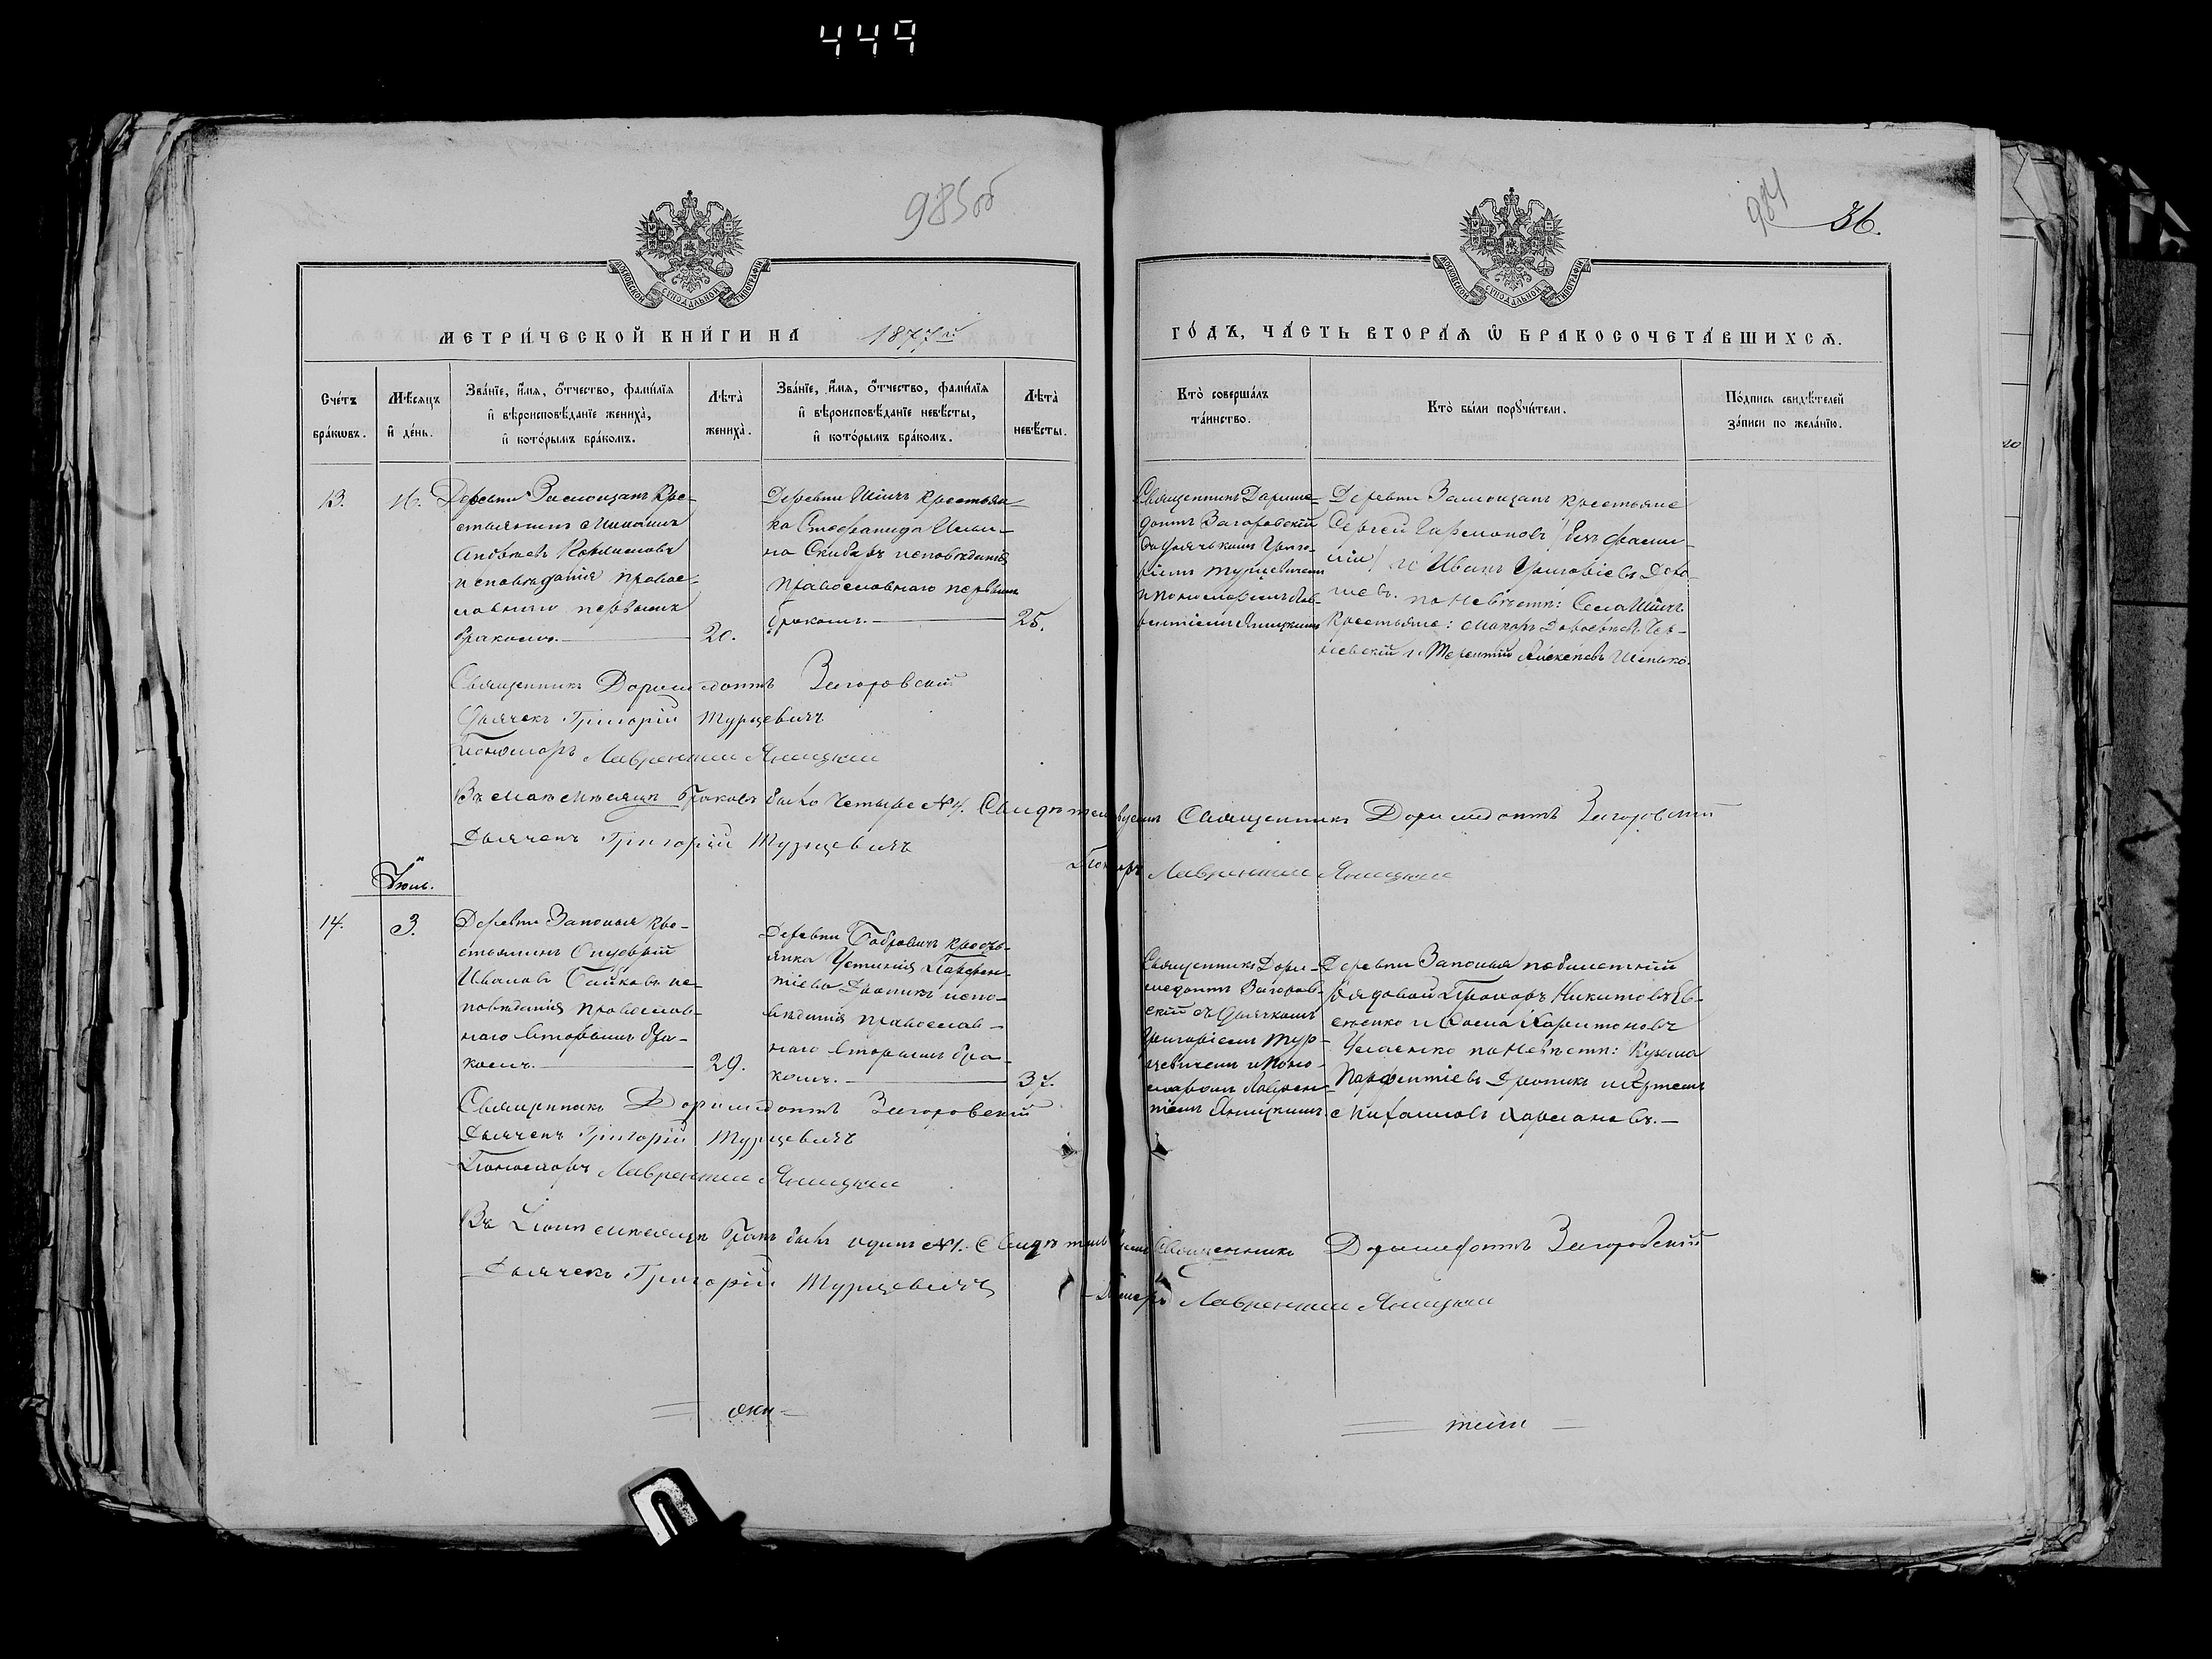 449
985об
984
36.
МОСКОВСКОЙ СѴНОДАЛЬНОЙ ТИПОГРАФІИ
МОСКОВСКОЙ СѴНОДАЛЬНОЙ ТИПОГРАФІИ
МЕТРИ́ЧЕСКОЙ КНИ́ГИ НА 1877й
ГО́ДЪ, ЧА́СТЬ ВТОРА́Я Ѿ БРАКОСОЧЕТА́ВШИХСѦ.
Сче́тъ бра́кѡвъ.
Мѣ́сяцъ и҆ де́нь.
Зва́нїе, и҆́мя, ѻ҆́тчество, фами́лїя
и҆ вѣроисповѣ́данїе жениха̀,
и҆ кото́рымъ бра́комъ.
Лѣта̀ жениха̀.
Зва́нїе, и҆́мя, ѻ҆́тчество, фами́лїя
и҆ вѣроисповѣ́данїе невѣ́сты,
и҆ кото́рымъ бра́комъ.
Лѣта̀ невѣ́сты.
Кто̀ соверша́лъ
та́инство.
Кто̀ бы́ли порꙋчи́тели.
По́дпись свидѣ́телей
за́писи по жела́нїю.
13.
16.
Деревни Замощанъ Кре-
стьянинъ
исповѣданія правос-
лавнаго первымъ
бракомъ.
20.
Деревни Шіичъ Крестьян-
ка Стефанида Ильи-
на Скибаръ исповѣданія
православнаго первымъ
бракомъ.
25.
Священникъ Дориме-
донтъ Загоровскій
съ Дьячкомъ Григо-
ріемъ Турцевичемъ
и Пономаремъ Лав-
рентіемъ Яницкимъ
Деревни Замощанъ крестьяне
Сергей Гармоновъ /безъ фами-
ліи/ и Иванъ Григоріевъ
по Невѣстѣ: Села Шіичъ
Крестьяне: Макаръ
и Терентій
Священникъ Доримедонтъ Загоровскій
Дьячекъ Григорій Турцевичъ
Пономарь Лаврентій Яницкій
Въ Маѣ мѣсяцѣ браковъ было четыре №4. Свидѣтельствуемъ Священникъ Доримедонтъ Загоровскій
Дьячекъ Григорій Турцевичъ
Лаврентій Яницкій
Іюнь.
14.
3.
Деревни Заполья Кре-
стьянинъ Онуфрій
Ивановъ Байковъ ис-
повѣданія православ-
наго вторымъ бра-
комъ.
29.
Деревни Бобровичъ Кресть-
янка Устинія Парфен-
тіева Дроникъ испо-
вѣданія православ-
наго вторымъ бра-
комъ.
37.
Священникъ Дори-
медонтъ Загоров-
скій съ Дьячкомъ
Григоріемъ Тур-
цевичемъ и Поно-
маремъ Лаврен-
тіемъ Яницкимъ.
Деревни Заполья
рядовой Прохоръ Никитовъ Ев-
сѣенко и Сома Харитоновъ
по Невѣстѣ: Кузьма
Парфентіевъ Дроникъ и Артемъ
Михайловъ
Священникъ Доримедонтъ Загоровскій
Дьячекъ Григорій Турцевичъ
Пономарь Лаврентій Яницкій
Въ Іюнѣ мѣсяцѣ бракъ былъ одинъ №1. Свидѣтельствуемъ Священникъ Доримедонтъ Загоровскій
Дьячекъ Григорій Турцевичъ
Лаврентій Яницкій